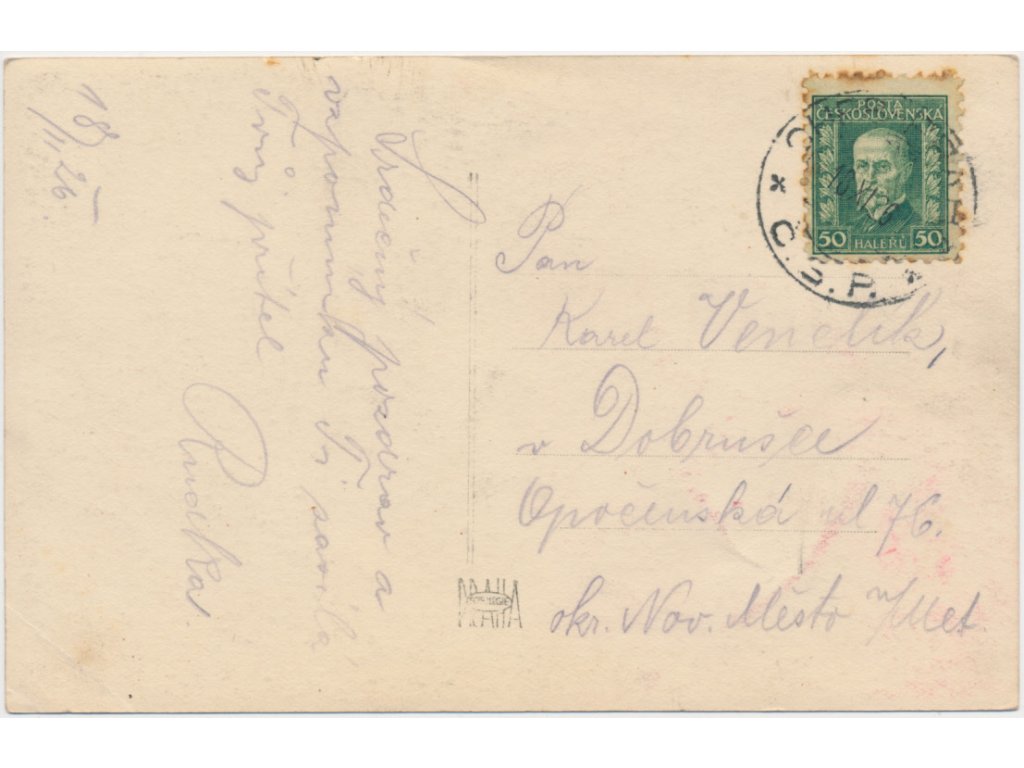 18/II 26.
Srdečný pozdrav a
vzpomínkou Ti zasílá
Tvůj přítel
Rudka.
POŠTA
ČESKOSLOVENSKA
50 HALÉŘŮ 50
Č.S.P.
Pan
Karel Venclík,
v Dobrušce
Opočenská ul 76.
okr. Nov. Město n/Met.